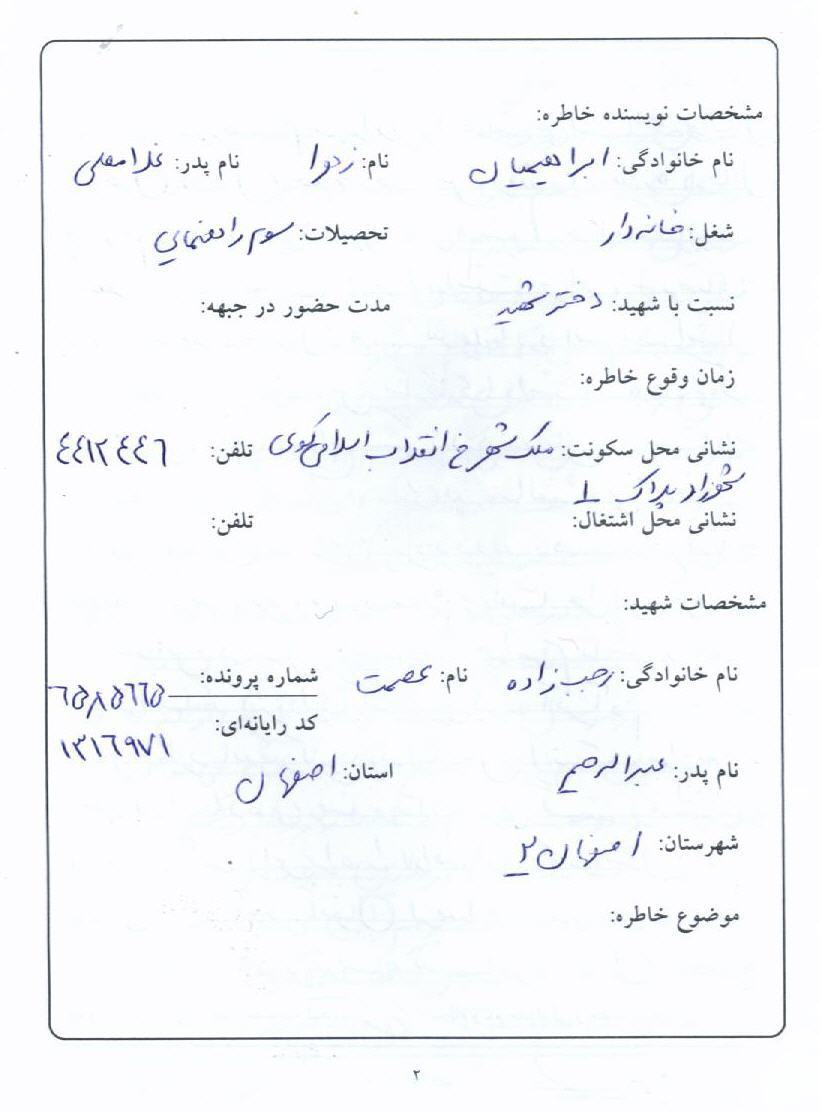 مشخصات نویسنده خاطره:
نام خانوادگی: ابراهیمیان نام: زهرا نام پدر: غلامعلی
شغل: خانه‌دار تحصیلات: سوم راهنمایی
نسبت با شهید: دختر شهید مدت حضور در جبهه:
زمان وقوع خاطره:
نشانی محل سکونت: ملک شهر خ انقلاب اسلامی کوی تلفن: ٤٤١٢٤٤٦
پلاک
نشانی محل اشتغال: تلفن:
مشخصات شهید:
نام خانوادگی: رجب‌زاده نام: عصمت شماره پرونده: ٦٥٨٥٦٦٥
کد رایانه‌ای: ١٣١٦٩٧١
نام پدر: عبدالرحیم استان: اصفهان
شهرستان: اصفهان ۲
موضوع خاطره:
۲